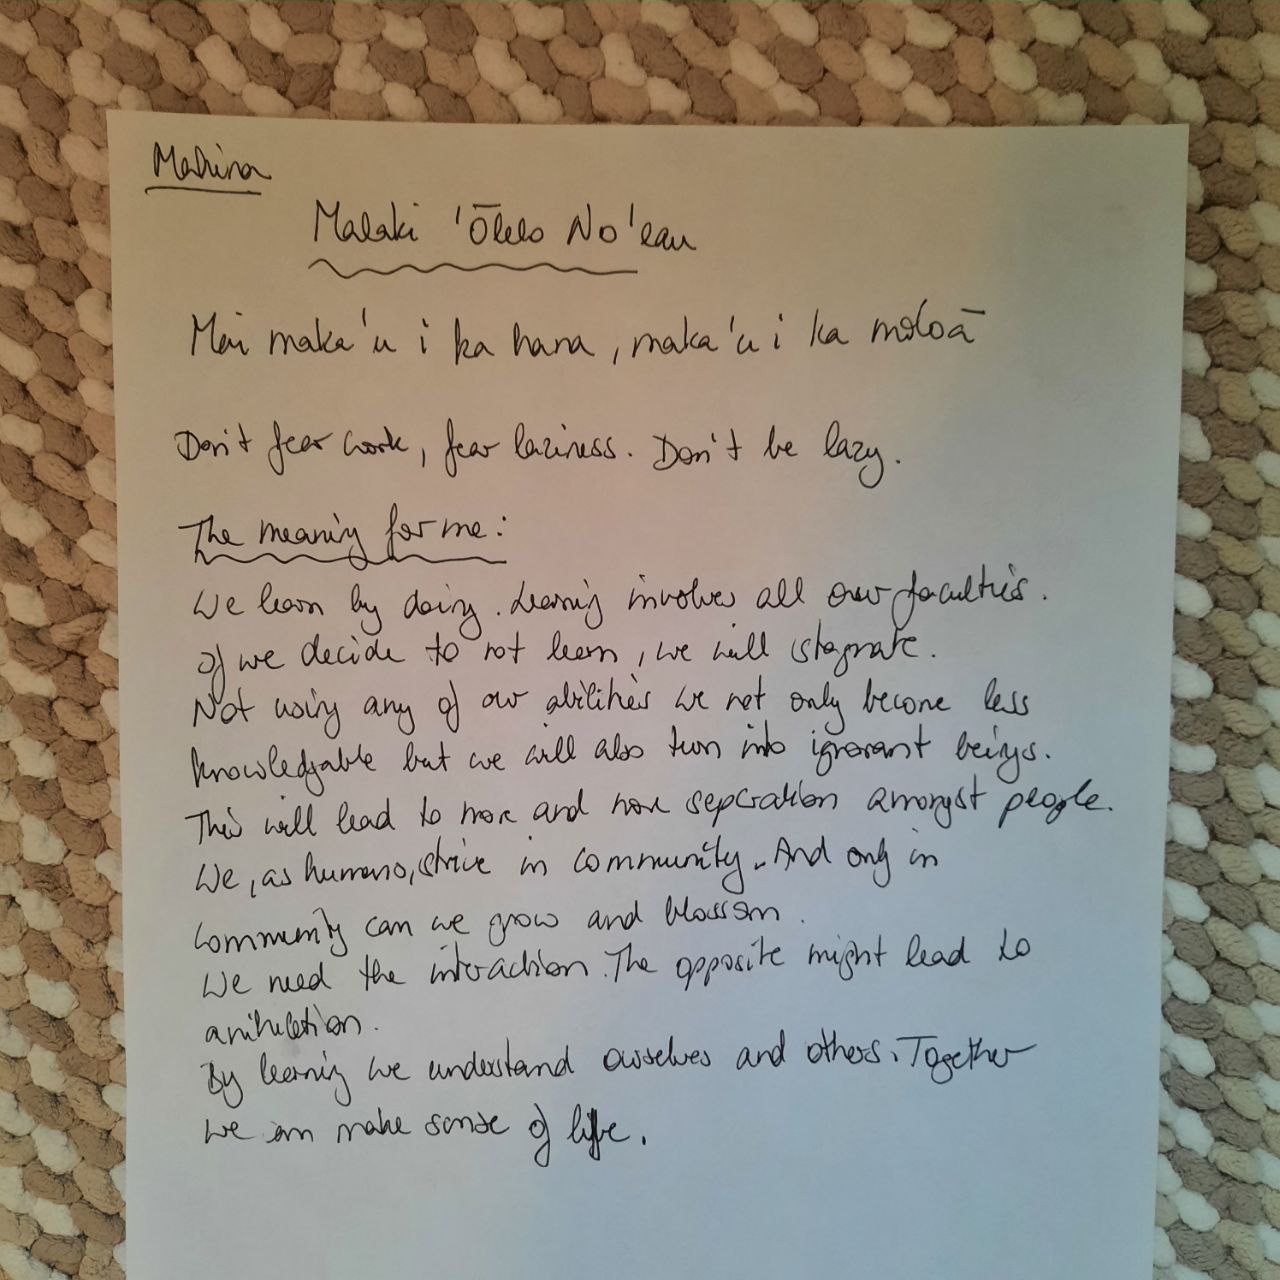 Mahina
Malaki 'Ōlelo No'eau
Mai maka'u i ka hana, maka'u i ka moloā
Don't fear work, fear laziness. Don't be lazy.
The meaning for me:
We learn by doing. Learning involves all our faculties.
If we decide to not learn, we will stagnate.
Not using any of our abilities we not only become less
knowledgable but we will also turn into ignorant beings.
This will lead to more and more separation amongst people.
We, as humans, strive in community. And only in
community can we grow and blossom.
We need the interaction. The opposite might lead to
anihilation.
By learning we understand ourselves and others. Together
we can make sense of life.